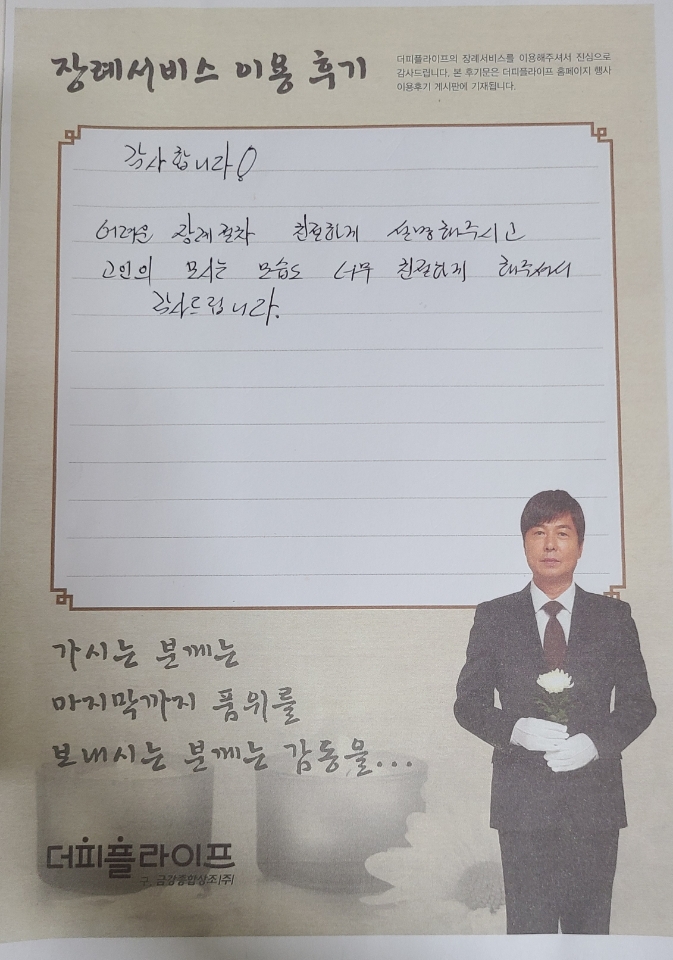 장례서비스 이용 후기
더피플라이프의 장례서비스를 이용해주셔서 진심으로
감사드립니다. 본 후기문은 더피플라이프 홈페이지 행사
이용후기 게시판에 기재됩니다.
감사합니다!
어려운 장례절차 친절하게 설명해주시고
고인의 모시는 모습도 너무 친절하게 해주셔서
감사드립니다.
가시는 분께는
마지막까지 품위를
보내시는 분께는 감동을...
더피플라이프
구. 금강종합상조(주)